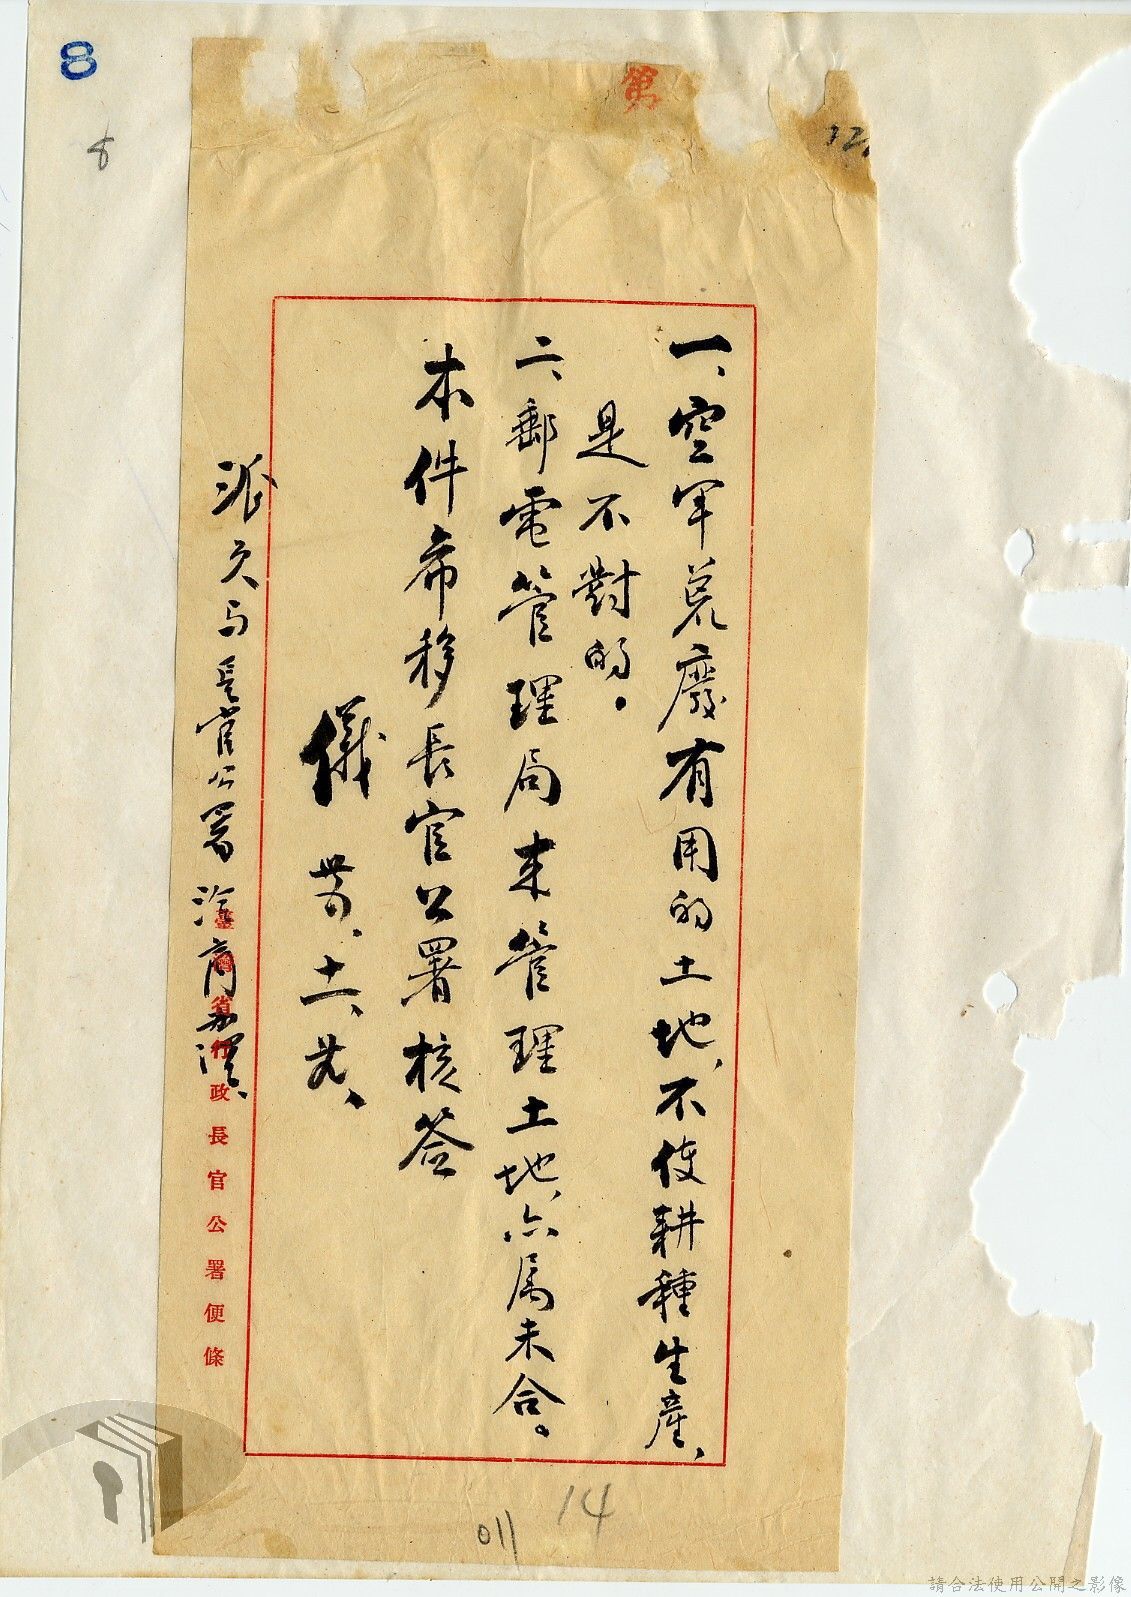 8
8
第
32
一、空軍荒廢有用的土地,不使耕種生產、
是不對的。
二、郵電管理局来管理土地,亦属未合。
本件希移長官公署核签
儀 卅、十一、廿、
派久与長官公署洽商办理、
臺灣省行政長官公署便條
14
011
請合法使用公開之影像